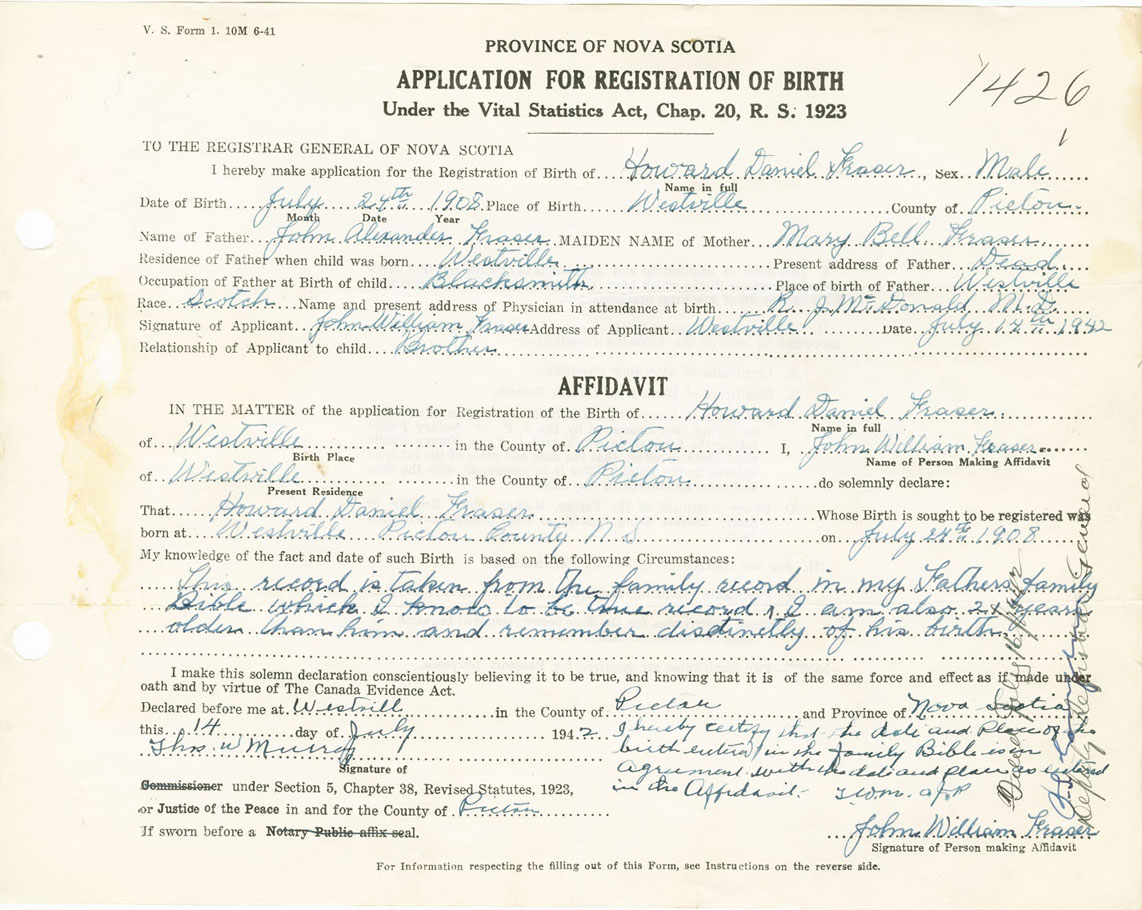 V. S. Form 1. 10M 6-41
PROVINCE OF NOVA SCOTIA
APPLICATION FOR REGISTRATION OF BIRTH
1426
Under the Vital Statistics Act, Chap. 20, R. S. 1923
1
TO THE REGISTRAR GENERAL OF NOVA SCOTIA
I hereby make application for the Registration of Birth of Howard Daniel Fraser, Sex Male
Name in full
Date of Birth July 24th 1908 Place of Birth Westville County of Pictou
Month Date Year
Name of Father John Alexander Fraser MAIDEN NAME of Mother Mary Bell Fraser
Residence of Father when child was born Westville Present address of Father Dead
Occupation of Father at Birth of child Blacksmith Place of birth of Father Westville
Race Scotch Name and present address of Physician in attendance at birth R. J. McDonald M.D.
Signature of Applicant John William Fraser Address of Applicant Westville Date July 12th 1942
Relationship of Applicant to child Brother
AFFIDAVIT
IN THE MATTER of the application for Registration of the Birth of Howard Daniel Fraser
Name in full
of Westville in the County of Pictou I, John William Fraser
Birth Place Name of Person Making Affidavit
of Westville in the County of Pictou do solemnly declare:
Present Residence
That Howard Daniel Fraser Whose Birth is sought to be registered was
born at Westville Pictou County N.S. on July 24th 1908
My knowledge of the fact and date of such Birth is based on the following Circumstances:
This record is taken from the family record in my Fathers family
Bible which I know to be true record, I am also 24 years
older than him and remember distinctly of his birth
I make this solemn declaration conscientiously believing it to be true, and knowing that it is of the same force and effect as if made under
oath and by virtue of The Canada Evidence Act.
Declared before me at Westvill in the County of Pictou and Province of Nova Scotia
this 14 day of July 1942
Thos W Murray
Signature of
I hereby certify that the Date and Place of the
birth entered in the family Bible is in
Agreement with the date and place as entered
in the Affidavit. T.W.M. J P
Commissioner under Section 5, Chapter 38, Revised Statutes, 1923,
or Justice of the Peace in and for the County of Pictou
If sworn before a Notary Public affix seal.
John William Fraser
Signature of Person making Affidavit
For Information respecting the filling out of this Form, see Instructions on the reverse side.
Dated July 16/1942
Deputy Registrar General